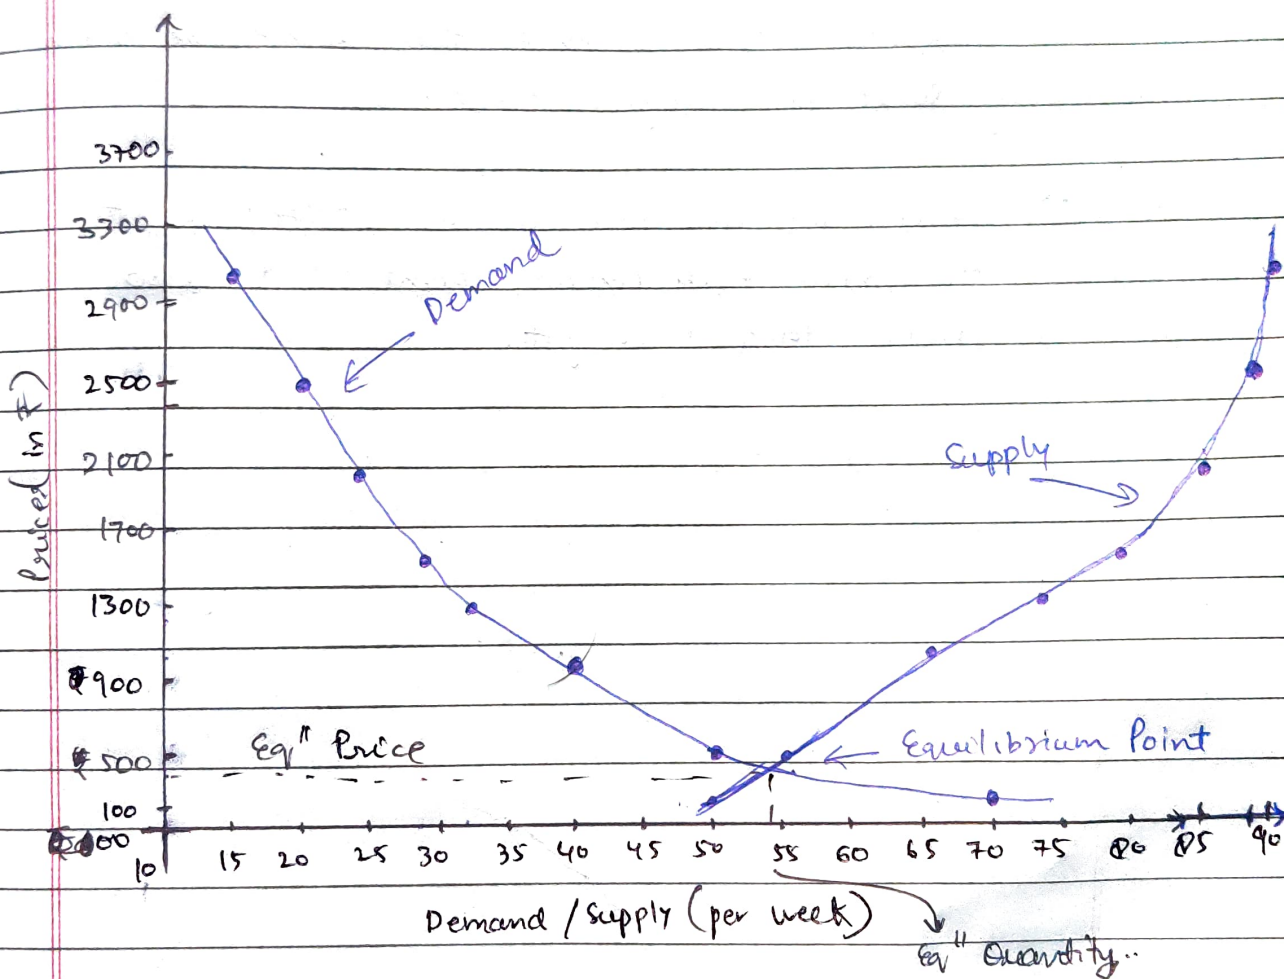 3700
3300
2900
2500
2100
1700
1300
900
500
100
Prices (in ₹)
Demand
Supply
Eqⁿ Price
Equilibrium Point
10 15 20 25 30 35 40 45 50 55 60 65 70 75 80 85 90
Demand / Supply (per week)
Eqⁿ Quantity..